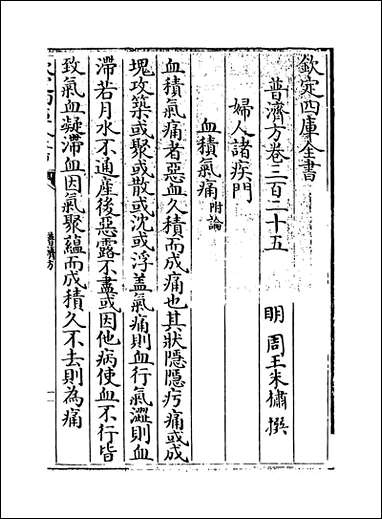 欽定四庫全書
普濟方卷三百二十五
明 周王朱橚 撰
婦人諸疾門
血積氣痛附論
血積氣痛者惡血久積而成痛也其狀隱隱㽲痛或成
塊攻築或聚或散或沈或浮盖氣痛則血行氣澀則血
滯若月水不通産後惡露不盡或因他病使血不行皆
致氣血凝滯血因氣聚蘊而成積久不去則為痛
普濟方